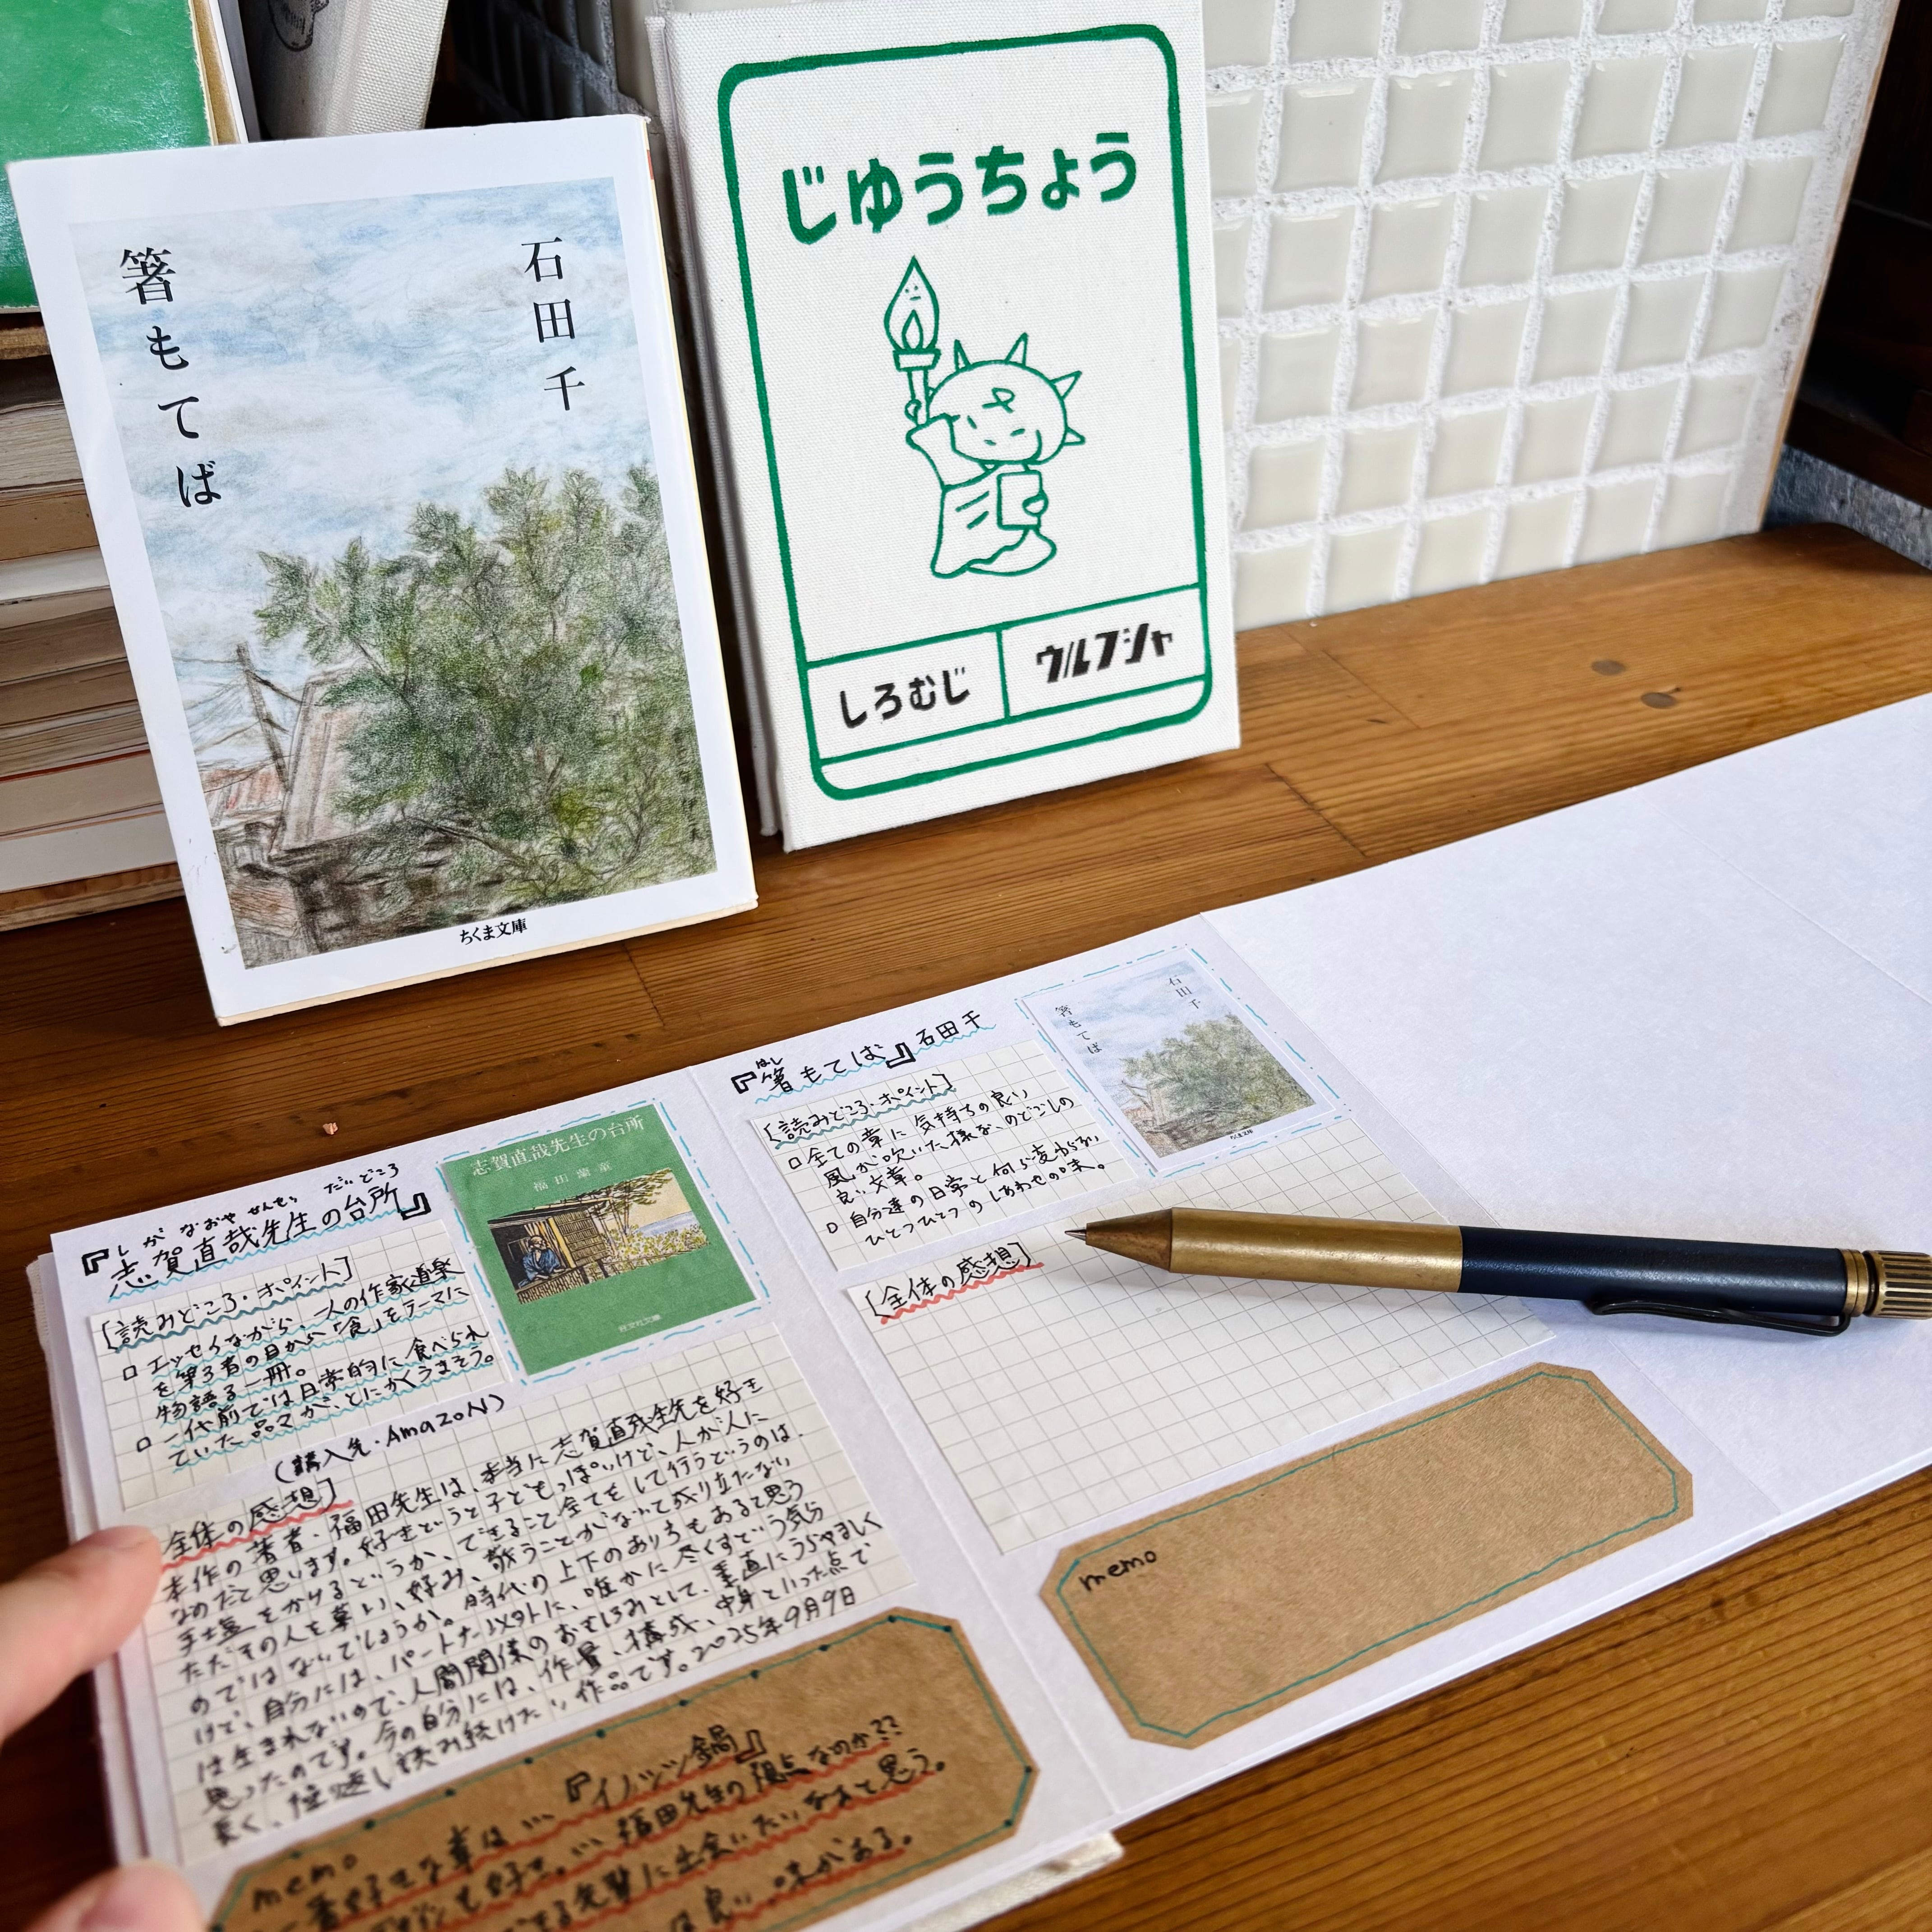 箸もてば
石田千
ちくま文庫
じゆうちょう
しろむじ
ウルフシャ
しが なおや せんせい だいどころ
『志賀直哉先生の台所』
志賀直哉先生の台所
福田蘭童
旺文社文庫
[読みどころ・ポイント]
エッセイながら、一人の作家道楽
を第3者の目から「食」をテーマに
物語る一冊。
一代前では日常的に食べられ
ていた品々が、とにかくうまそう。
(購入先・AmazoN)
全体の感想]
本作の著者・福田先生は、本当に志賀直哉先生を好き
なのだと思います。好きというと子どもっぽいけど、人が人に
手塩をかけるというか、できること全てをして行うというのは、
ただその人を慕い、好み、敬うことがなくて成り立たない
のではないでしょうか。時代の上下のありちもあると思う
けど、自分には、パートナー以外に、唯かに尽くすという気分
は生まれないので、人間関係のおもしろみとして、素直にうらやましく
思ったのです。今の自分には、作量、構成、中身といった点で
長く、繰返し読み続けたい作品です。2025年9月9日
memo
一番好きな章は…『イノシシ鍋』
も好き。…福田先生の視点なのか??
できる先輩に出会いたいなあと思う。
は良い味がある。
はし
『箸もてば』石田千
石田千
箸もてば
ちくま文庫
[読みどころ・ポイント]
全ての章に気持ちの良い
風が吹いた様な、のどごしの
良い文章。
自分達の日常と何ら変わらない
ひとつひとつのしあわせの味。
[全体の感想]
memo